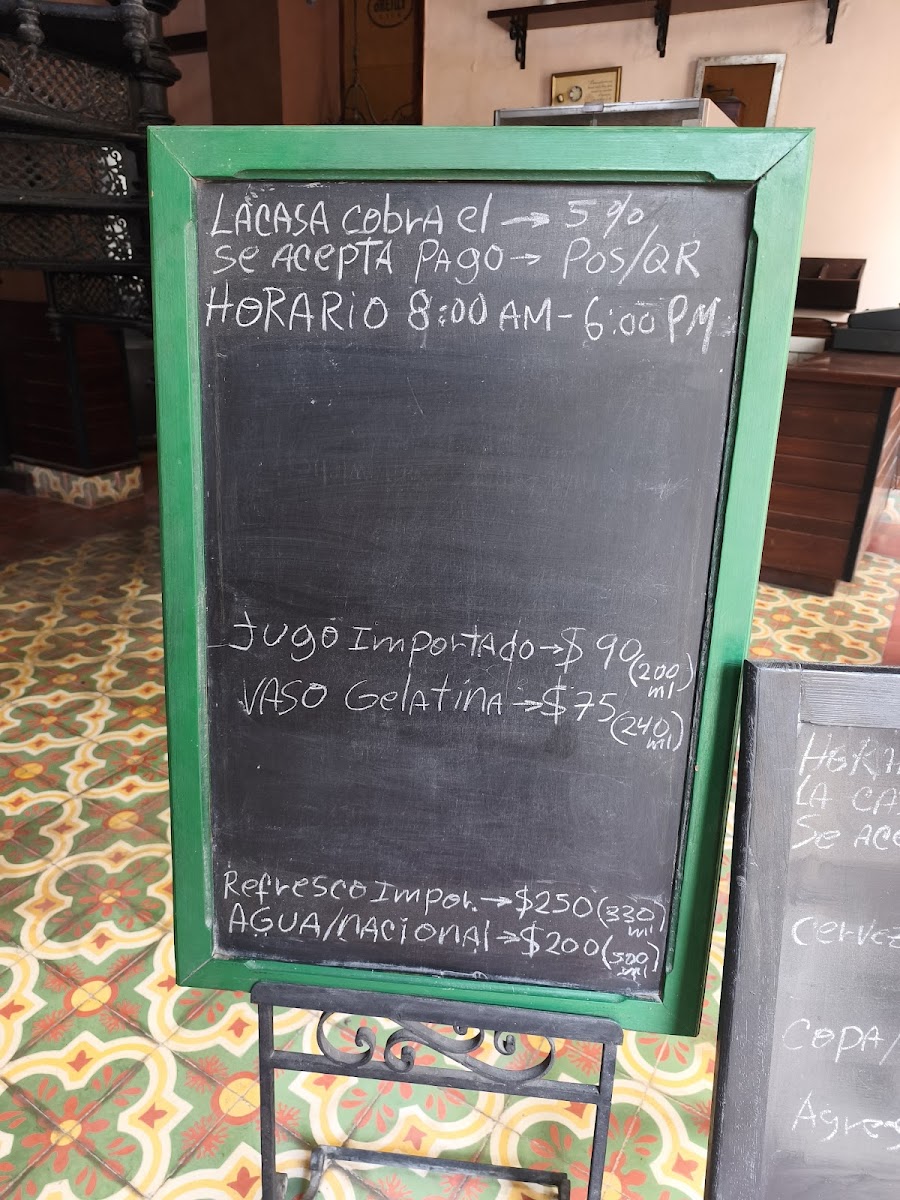 LA CASA cobra el → 5 %
Se ACEPTA PAgo → POS/QR
HORARIO 8:00 AM - 6:00 PM
Jugo Importado → $ 90 (200 ml)
VASO Gelatina → $75 (240 ml)
Refresco Impor. → $250 (330 ml)
AGUA/Nacional → $200 (500 ml)
LA CA
Se ACE
Cervez
COPA/
Agreg